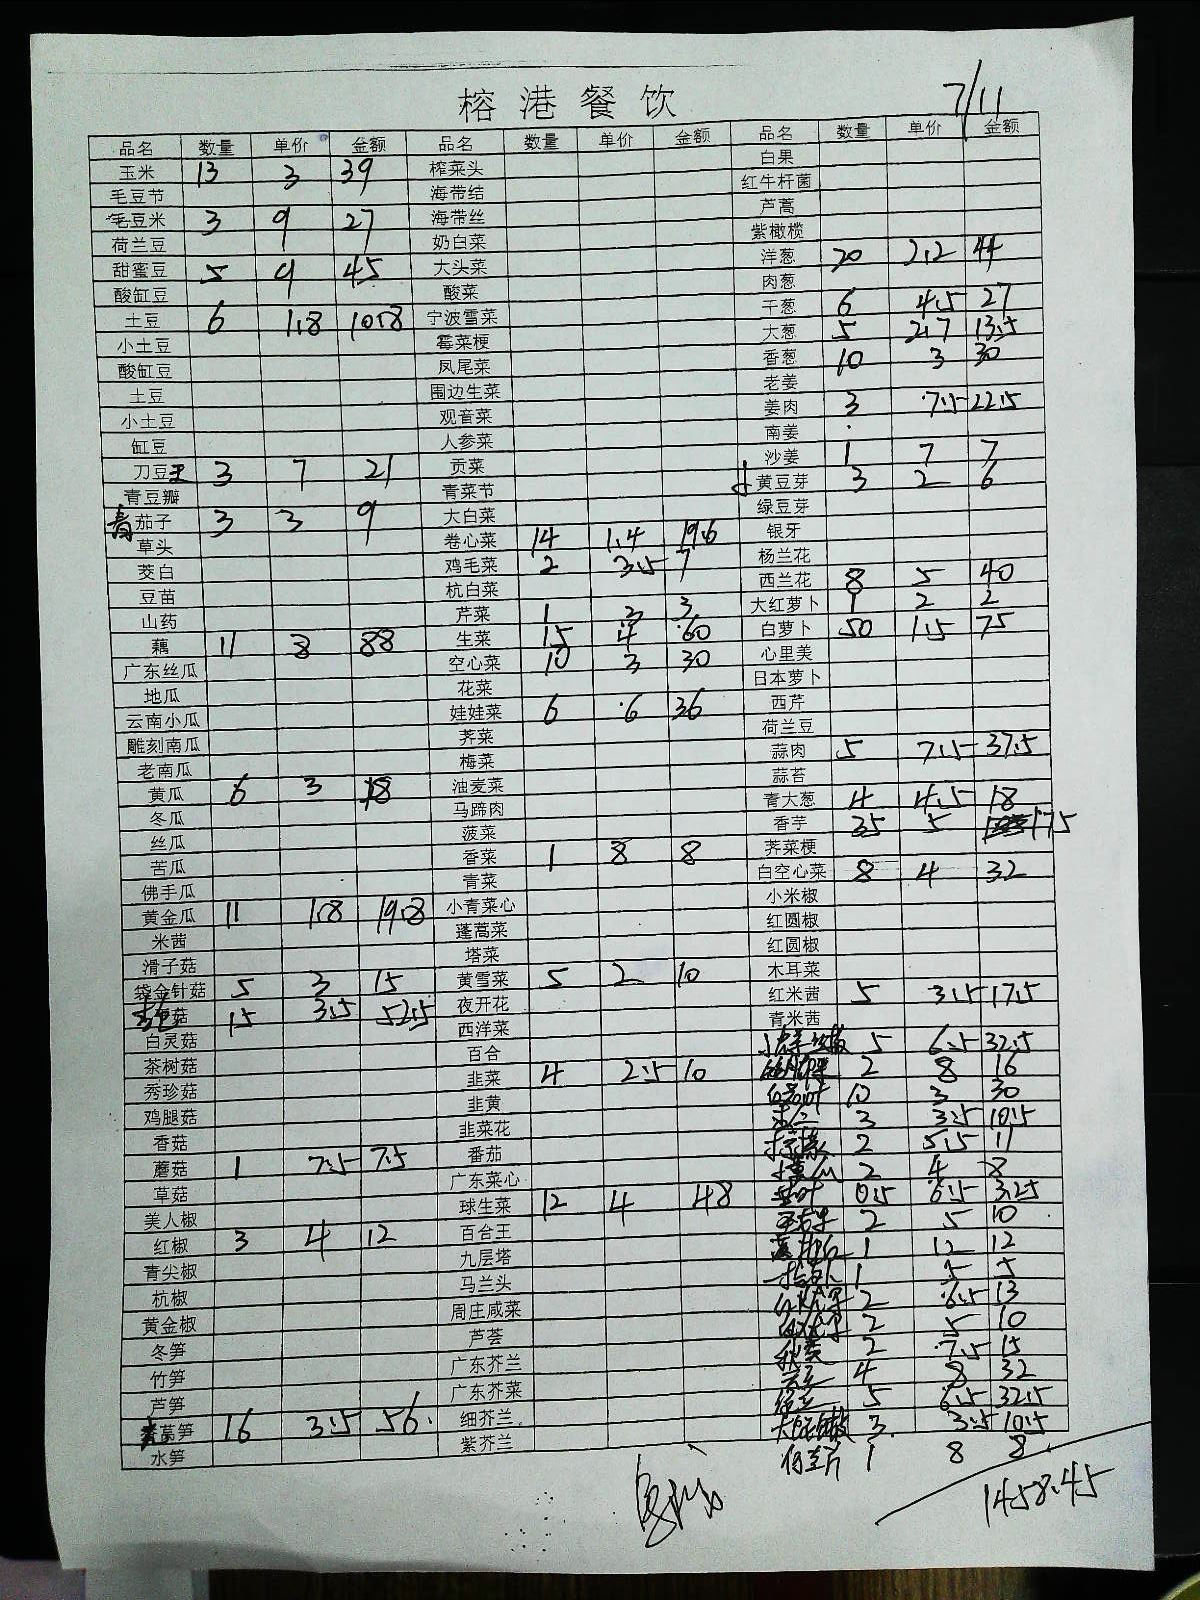 榕港餐饮
7/11
品名 数量 单价 金额 品名 数量 单价 金额 品名 数量 单价 金额
玉米 13 3 39 榨菜头 白果
毛豆节 海带结 红牛杆菌
毛豆米 3 9 27 海带丝 芦蒿
荷兰豆 奶白菜 紫橄榄
甜蜜豆 5 9 45 大头菜 洋葱 20 2.2 44
酸缸豆 酸菜 肉葱
土豆 6 1.8 10.8 宁波雪菜 干葱 6 4.5 27
小土豆 霉菜梗 大葱 5 2.7 13.5
酸缸豆 凤尾菜 香葱 10 3 30
土豆 围边生菜 老姜
小土豆 观音菜 姜肉 3 7.5 22.5
缸豆 人参菜 南姜
刀豆 3 7 21 贡菜 沙姜 1 7 7
青豆瓣 青菜节 黄豆芽 3 2 6
青茄子 3 3 9 大白菜 绿豆芽
草头 卷心菜 14 1.4 19.6 银牙
茭白 鸡毛菜 2 3.5 7 杨兰花
豆苗 杭白菜 西兰花 8 5 40
山药 芹菜 1 3 3 大红萝卜 1 2 2
藕 11 8 88 生菜 15 4 60 白萝卜 50 1.5 75
广东丝瓜 空心菜 10 3 30 心里美
地瓜 花菜 日本萝卜
云南小瓜 娃娃菜 6 6 36 西芹
雕刻南瓜 荠菜 荷兰豆
老南瓜 梅菜 蒜肉 5 7.5 37.5
黄瓜 6 3 18 油麦菜 蒜苔
冬瓜 马蹄肉 青大葱 4 4.5 18
丝瓜 菠菜 香芋 35 5 175
苦瓜 香菜 1 8 8 荠菜梗
佛手瓜 青菜 白空心菜 8 4 32
黄金瓜 11 1.8 19.8 小青菜心 小米椒
米茜 蓬蒿菜 红圆椒
滑子菇 塔菜 红圆椒
袋金针菇 5 3 15 黄雪菜 5 2 10 木耳菜
菇 15 3.5 52.5 夜开花 红米茜 5 3.5 17.5
白灵菇 西洋菜 青米茜
茶树菇 百合 5 6.5 32.5
秀珍菇 韭菜 4 2.5 10 2 8 16
鸡腿菇 韭黄 10 3 30
香菇 韭菜花 3 3.5 10.5
蘑菇 1 7.5 7.5 番茄 2 5.5 11
草菇 广东菜心 2 4 8
美人椒 球生菜 12 4 48 0.5 6.5 3.25
红椒 3 4 12 百合王 2 5 10
青尖椒 九层塔 1 12 12
杭椒 马兰头 1 5 5
黄金椒 周庄咸菜 2 6.5 13
冬笋 芦荟 2 5 10
竹笋 广东芥兰 2 7.5 15
芦笋 广东芥菜 4 8 32
莴笋 16 3.5 56 细芥兰 5 6.5 32.5
水笋 紫芥兰 3 3.5 10.5
1 8 8
1458.45